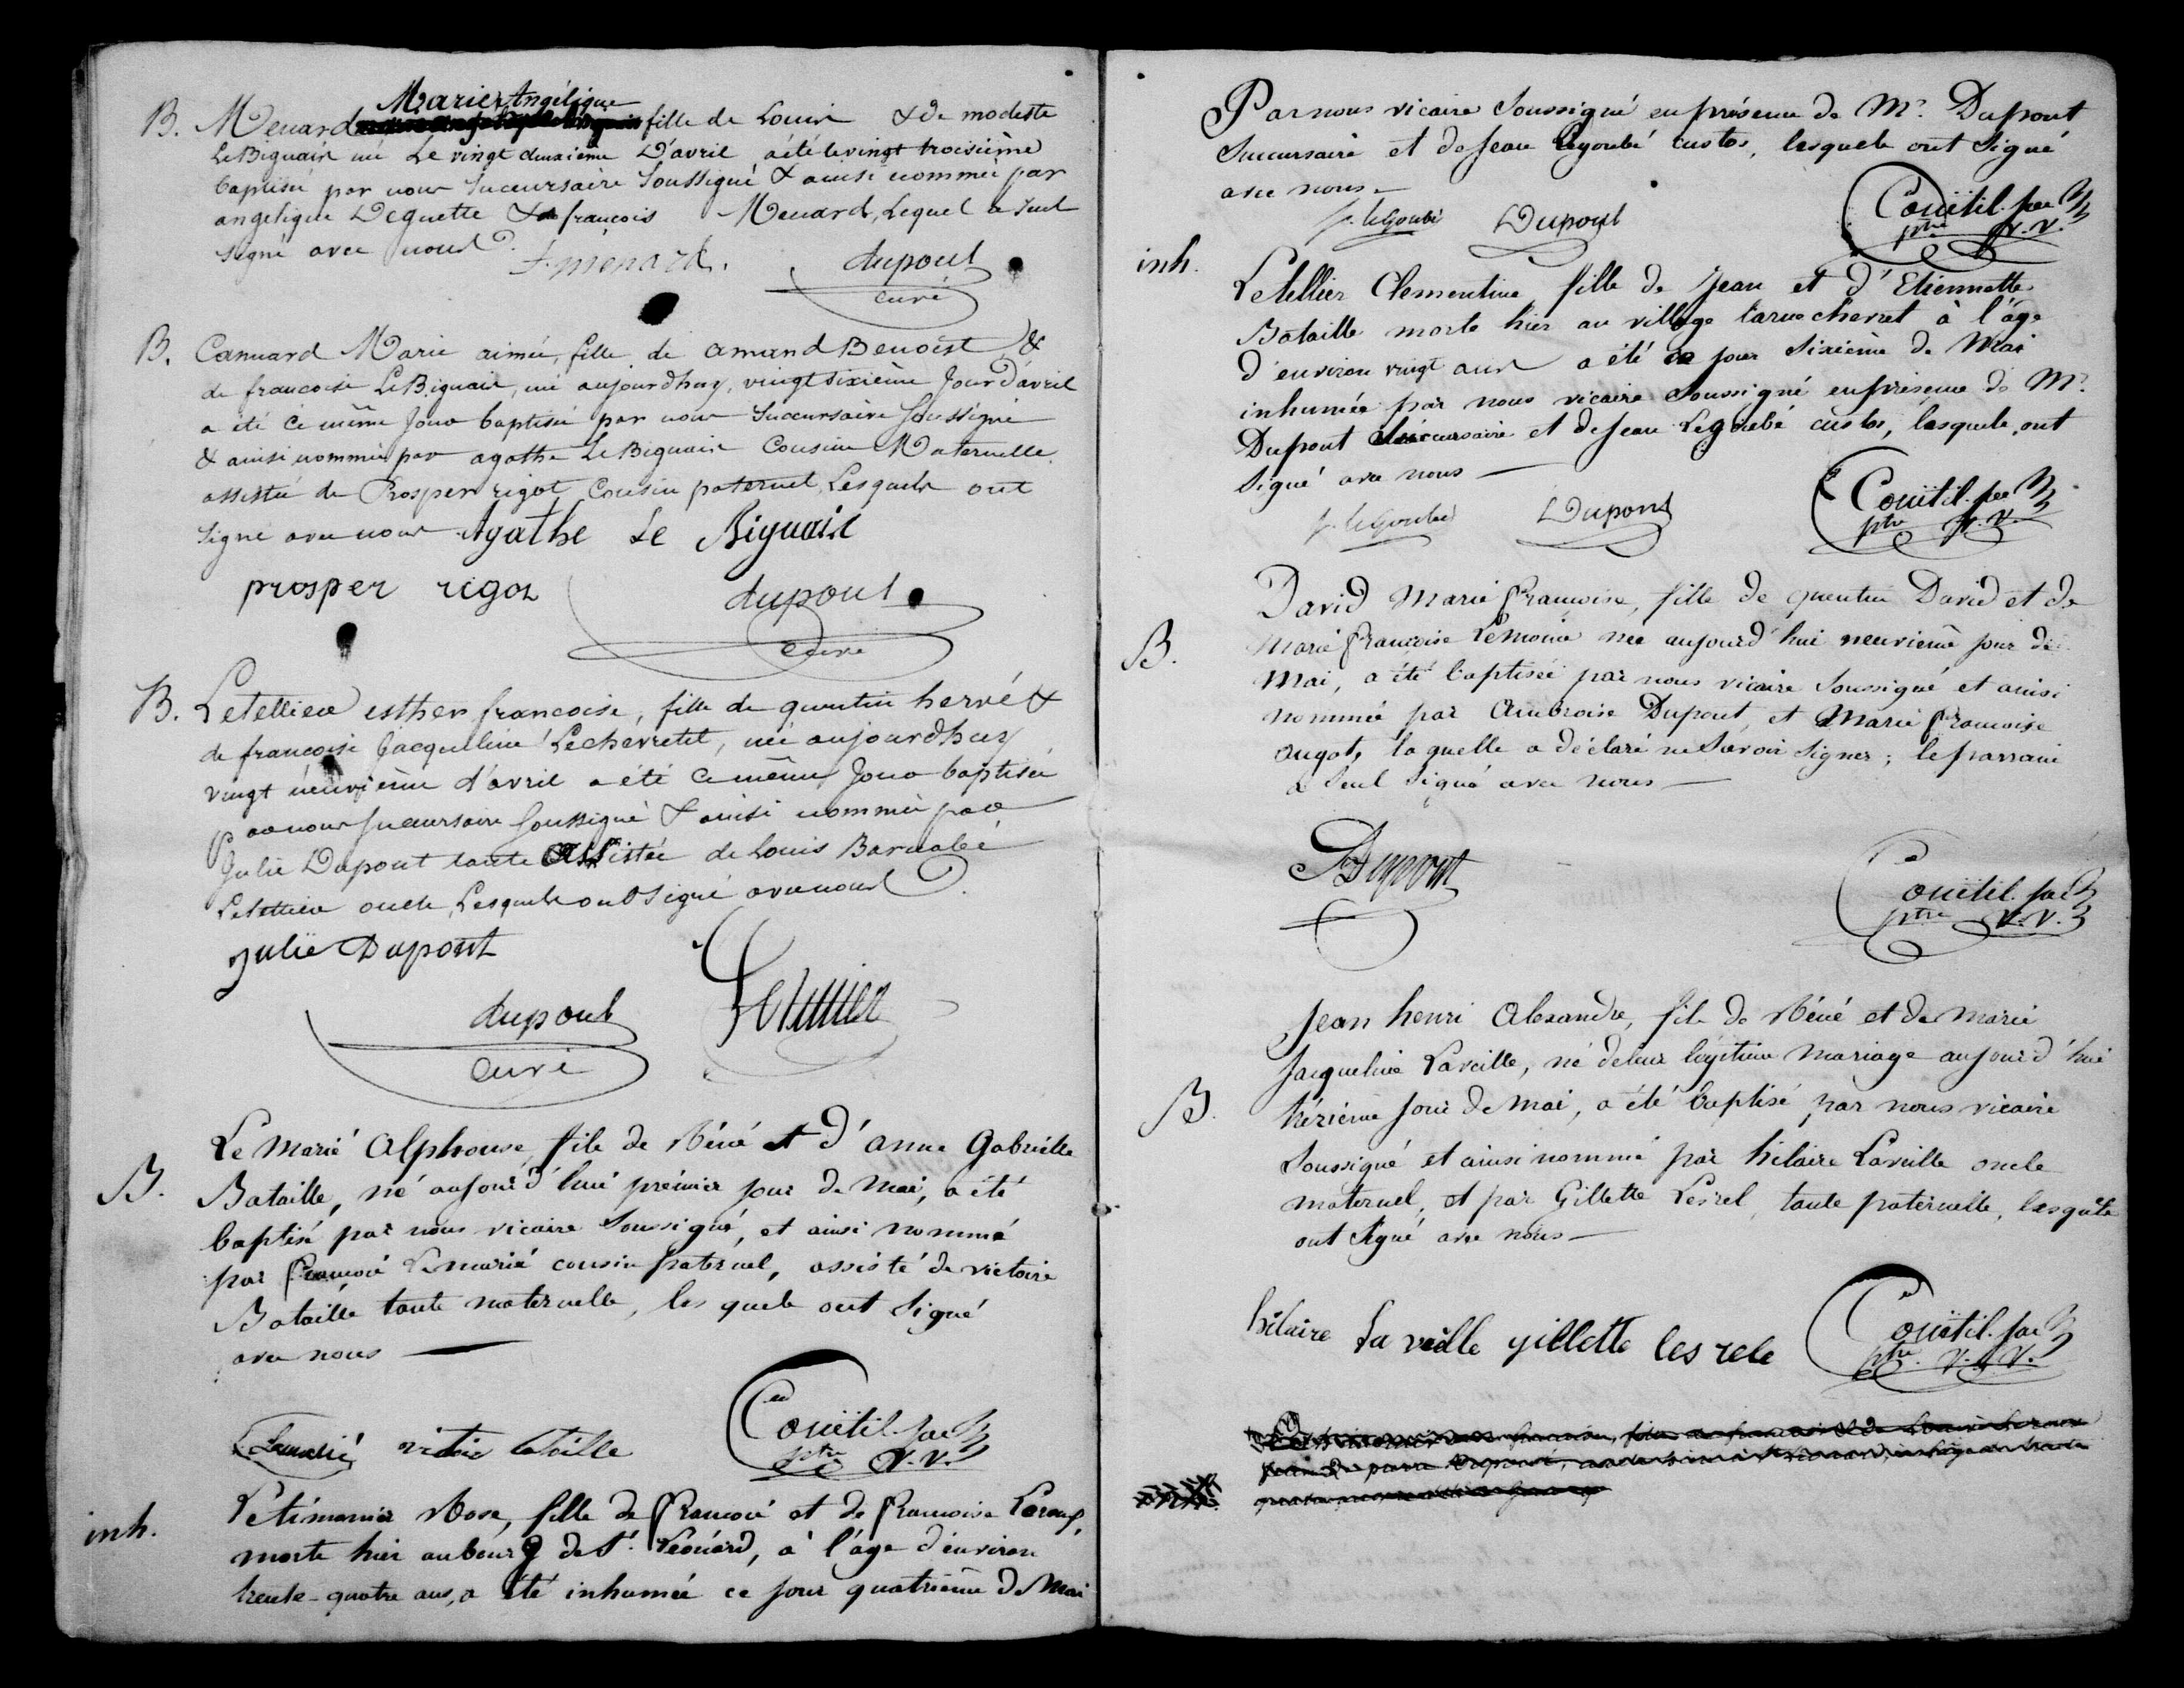 Marie Angélique
B. Menard fille de Louis & de modeste
LeBiguais née Le vingt deuxième D'avril, a été le vingt troisième
baptisée par nous Succursaire Soussigné & ainsi nommée par
angelique Deguette & de françois Menard, Lequel a Seul
Signé avec nous.
f. menard. dupont
curé
B. Canuard Marie aimée, fille de amand Benoist &
de francoise LeBiguais, née aujourdhuy, vingt sixième Jour d'avril
a été ce même Jour baptisée par nous Succursaire Soussigné
& ainsi nommée par agathe LeBiguais Cousine Maternelle
assistée de Prosper rigot Cousin paternel, Lesquels ont
Signé avec nous Agathe Le Biguais
prosper rigot dupont
curé
B. Letellier esther francoise, fille de quentin hervé &
de francoise Jacqueline Lechevretel, née aujourdhuy
vingt neuvième d'avril a été ce même Jour baptisée
par nous Succursaire Soussigné & ainsi nommée par
Julie Dupont tante assistée de Louis Barnabé
Letellier oncle, Lesquels ont Signé avec nous.
Julie Dupont
dupont Letellier
curé
Le Marié Alphonse, fils de Réné et d'anne Gabrielle
B. Bataille, né aujourd'hui premier jour de Mai, a été
baptisé par nous vicaire Soussigné, et ainsi nommé
par François Lemarié cousin paternel, assisté de victoire
Bataille tante maternelle, les quels ont Signé
avec nous —
Lemarié victoire bataille Couëtil. jac
ptre V.V.
inh. Létimonier Rose, fille de François et de Françoise Leroux,
morte hier au bourg de St. Léonard, à l'âge d'environ
trente-quatre ans, a été inhumée ce jour quatrième de Mai
Par nous vicaire Soussigné en présence de Mr. Dupont
Succursaire et de Jean Legoubé custos, lesquels ont Signé
avec nous —
j. leGoubé Dupont Couëtil. jac
ptre V.V.
inh. Letellier Clementine fille de Jean et d'Etiennette
Bataille morte hier au village
à l'âge
d'environ vingt ans a été ce jour Sixième de Mai
inhumée par nous vicaire Soussigné en présence de Mr.
Dupont Succursaire et de Jean Legoubé custos, lesquels ont
Signé avec nous —
j. leGoubé Dupont Couëtil. jac
ptre V.V.
David Marie Françoise, fille de quentin David et de
B. Marie Françoise Lemoine née aujourd'hui neuvième jour de
Mai, a été baptisée par nous vicaire Soussigné et ainsi
nommée par Ambroise Dupont, et Marie Françoise
augot, laquelle a déclaré ne Savoir Signer; le parrain
a Seul Signé avec nous —
ADupont Couëtil. jac
ptre V.V.
Jean henri Alexandre, fils de Réné et de Marie
Jacqueline Laveille, né de leur légitime mariage aujourd'hui
B. trézième jour de Mai, a été baptisé par nous vicaire
Soussigné et ainsi nommé par hilaire Laveille oncle
maternel, et par Gillette Lesrel, tante paternelle, lesquels
ont Signé avec nous —
hilaire La veille gillette les rele Couëtil. jac
ptre V.V.